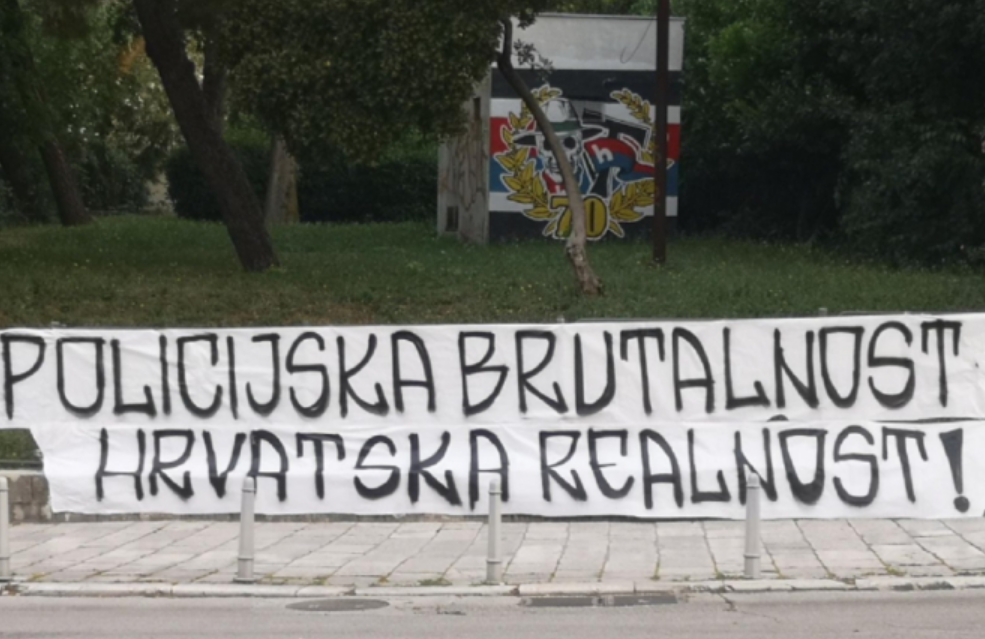 70
POLICIJSKA BRUTALNOST
HRVATSKA REALNOST!